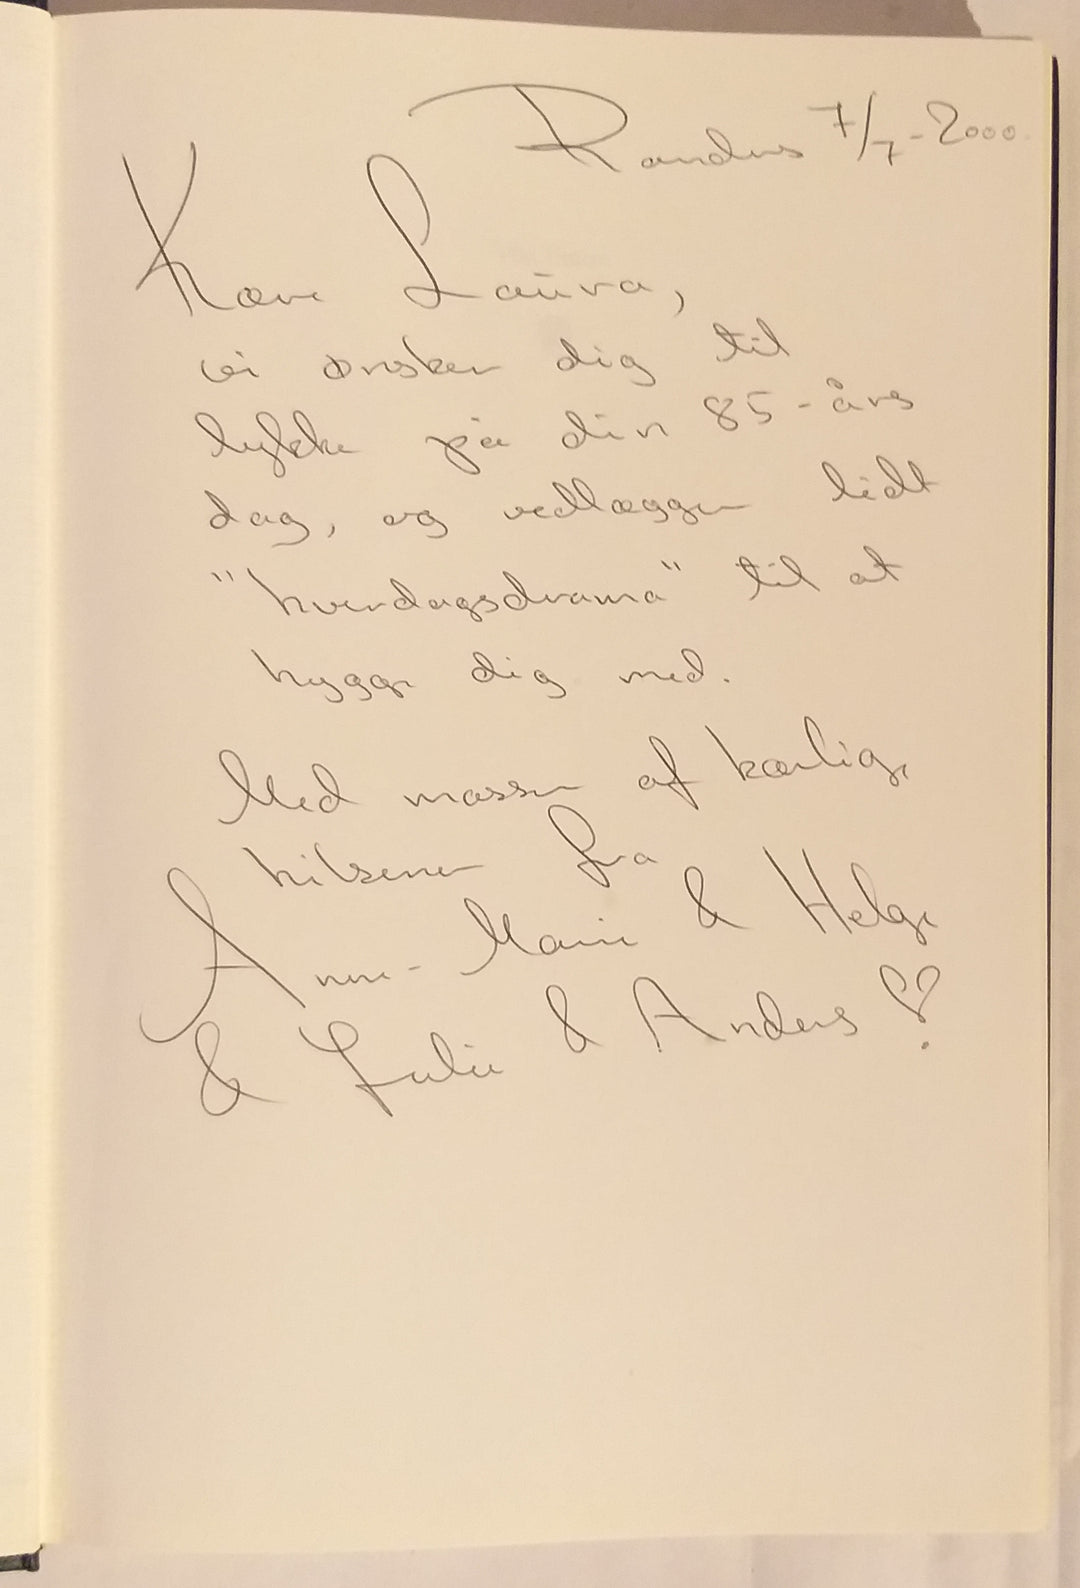 Randers 7/7-2000.
Kære Laura,
vi ønsker dig til
lykke på din 85-års
dag, og vedlægger lidt
"hverdagsdrama" til at
hygge dig med.
Med masser af kærlige
hilsener fra
Anne-Marie & Helge
& Julie & Anders ♡